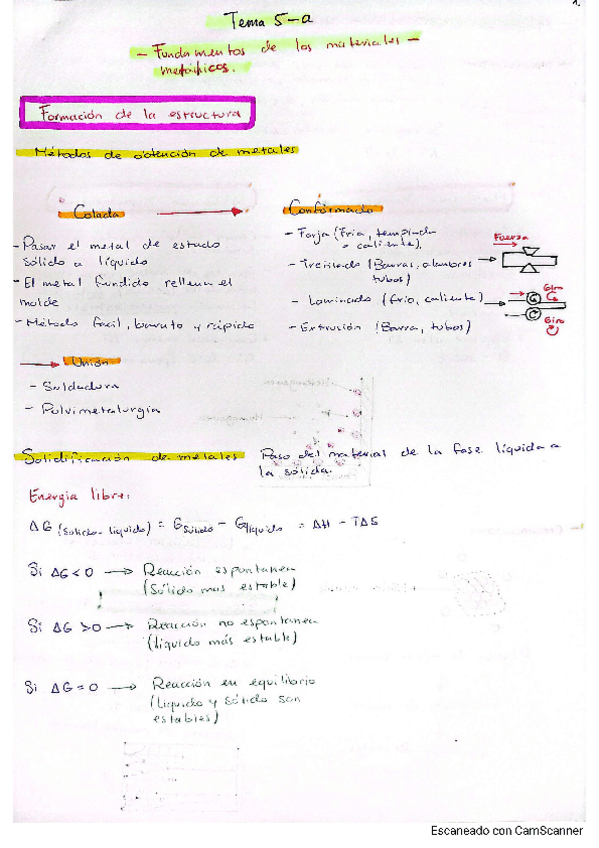 1.
Tema 5-a
- Fundamentos de los materiales -
metálicos.
Formación de la estructura
Métodos de obtención de metales
Colada
- Pasar el metal de estado
sólido a líquido
- El metal fundido rellena el
molde
- Método fácil, barato y rápido
Conformado
- Forja (Fría, templada
o caliente).
- Treislado (Barras, alambres
tubos)
- Laminado (frío, caliente)
- Extrusión (Barra, tubos)
Fuerza
Giro
Giro
Unión
- Soldadura
- Pulvimetalurgia
Solidificación de metales Paso del material de la fase líquida a
la sólida.
Energía libre:
ΔG (sólido-líquido) = Gsólido - Glíquido = ΔH - TΔS
Si ΔG < 0 → Reacción espontanea
(Sólido mas estable)
Si ΔG > 0 → Reacción no espontanea
(Líquido más estable)
Si ΔG = 0 → Reacción en equilibrio
(Líquido y sólido son
estables)
Escaneado con CamScanner